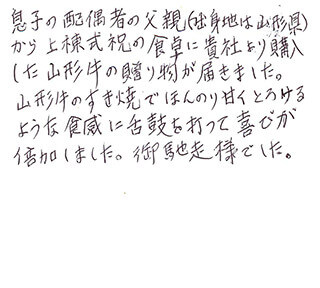 息子の配偶者の父親(出身地は山形県)
から上棟式祝の食卓に貴社より購入
した山形牛の贈り物が届きました。
山形牛のすき焼でほんのり甘くとろける
ような食感に舌鼓を打って喜びが
倍加しました。御馳走様でした。